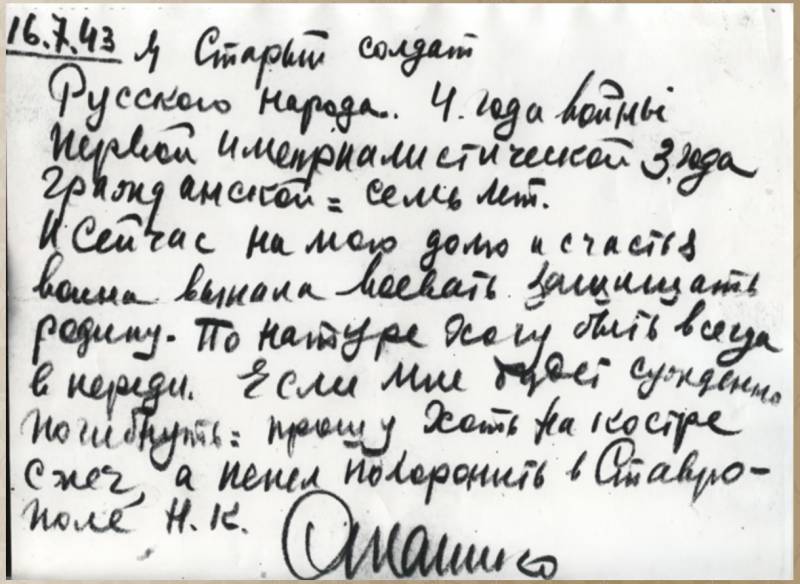 16.7.43 Я Старый солдат
Русского народа. 4. года войны
первой империалистической 3. года
гражданской = семь лет.
И сейчас на мою долю и счастья
воина выпала воевать защищать
родину. По натуре хочу быть всегда
в переди. Если мне будет сужденно
погибнуть = прошу хоть на костре
сжеч, а пепел похоронить в Ставро-
поле Н. К.
Апанасенко